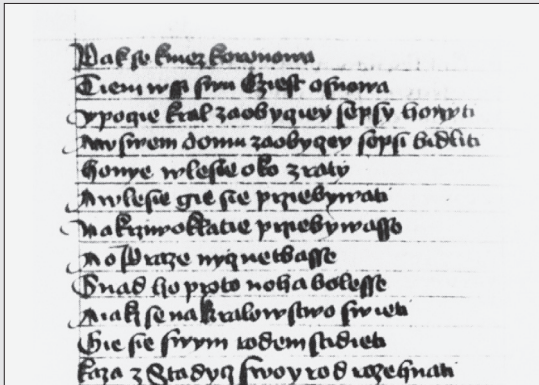 Pak se knyez korunowa
Tiem wssi swu Cziest osnowa
ypogie kral zaobyczey sepsy honyti
Aw swem domu zaobyczey sepsi bidliti
honye wlesie oko ztraty
Awlesie gie sie prziebywati
Na krziwoklatie prziebywasse
A o Praze nycz netbasse
Snad ho proto noha bolesse
A iak se na kralowstwo swieti
Gie sie swym rodem stidieti
kaza z Stadycz swoy rod rozehnati